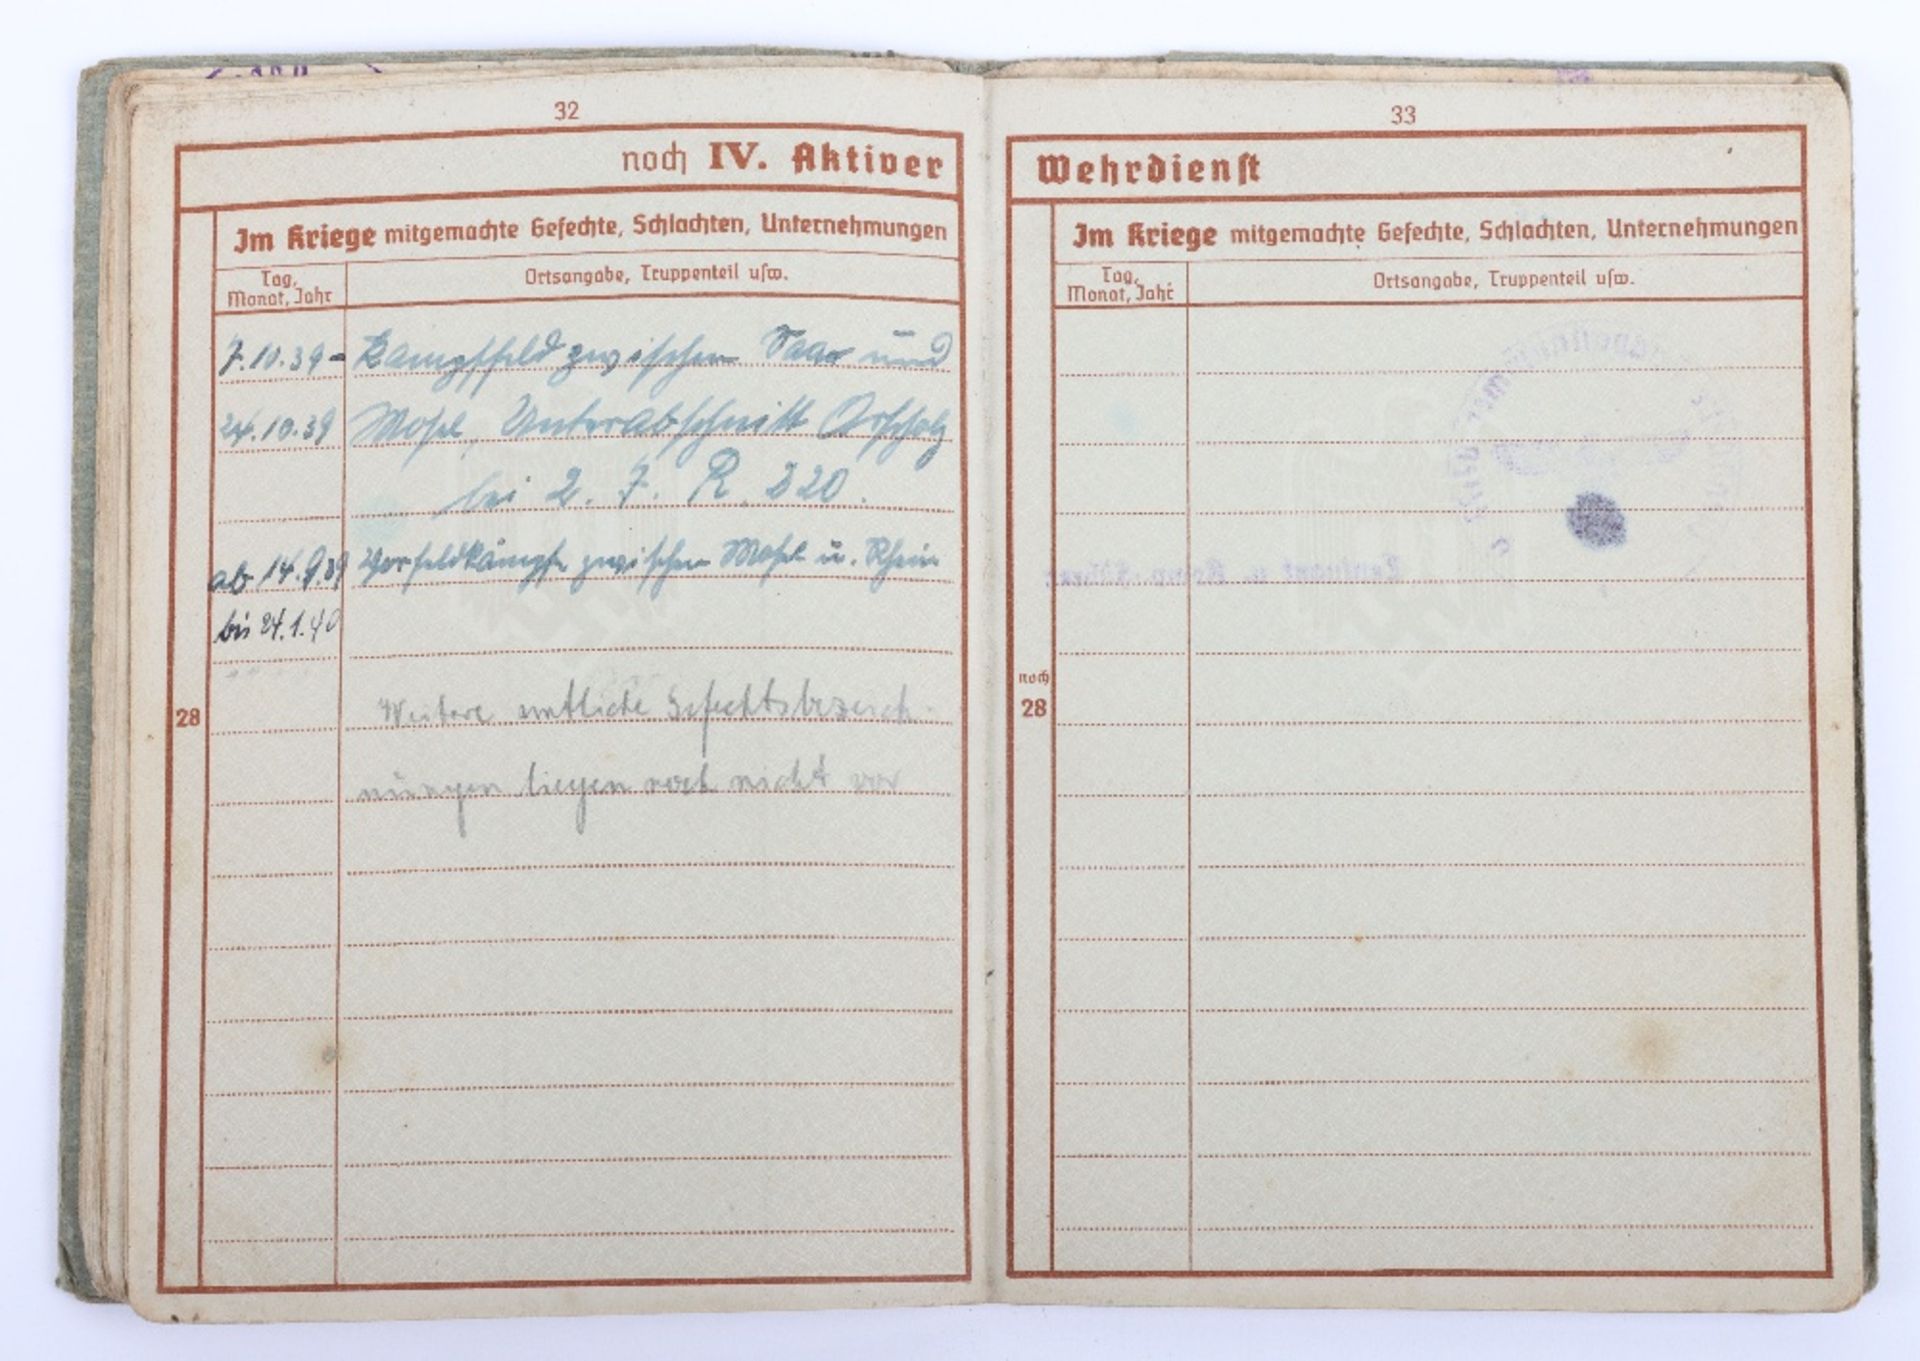 32
noch IV. Aktiver
Im Kriege mitgemachte Gefechte, Schlachten, Unternehmungen
Tag,
Monat, Jahr
Ortsangabe, Truppenteil usw.
7.10.39 - Kampffeld zwischen Saar und
24.10.39 Mosel, Unterabschnitt Orscholz
bei 2. J. R. 220.
ab 14.9.39 Vorfeldkämpfe zwischen Mosel u. Rhein
bis 24.1.40
28
Weitere amtliche Gefechtsbezeich-
nungen liegen noch nicht vor
33
Wehrdienst
Im Kriege mitgemachte Gefechte, Schlachten, Unternehmungen
Tag,
Monat, Jahr
Ortsangabe, Truppenteil usw.
noch
28